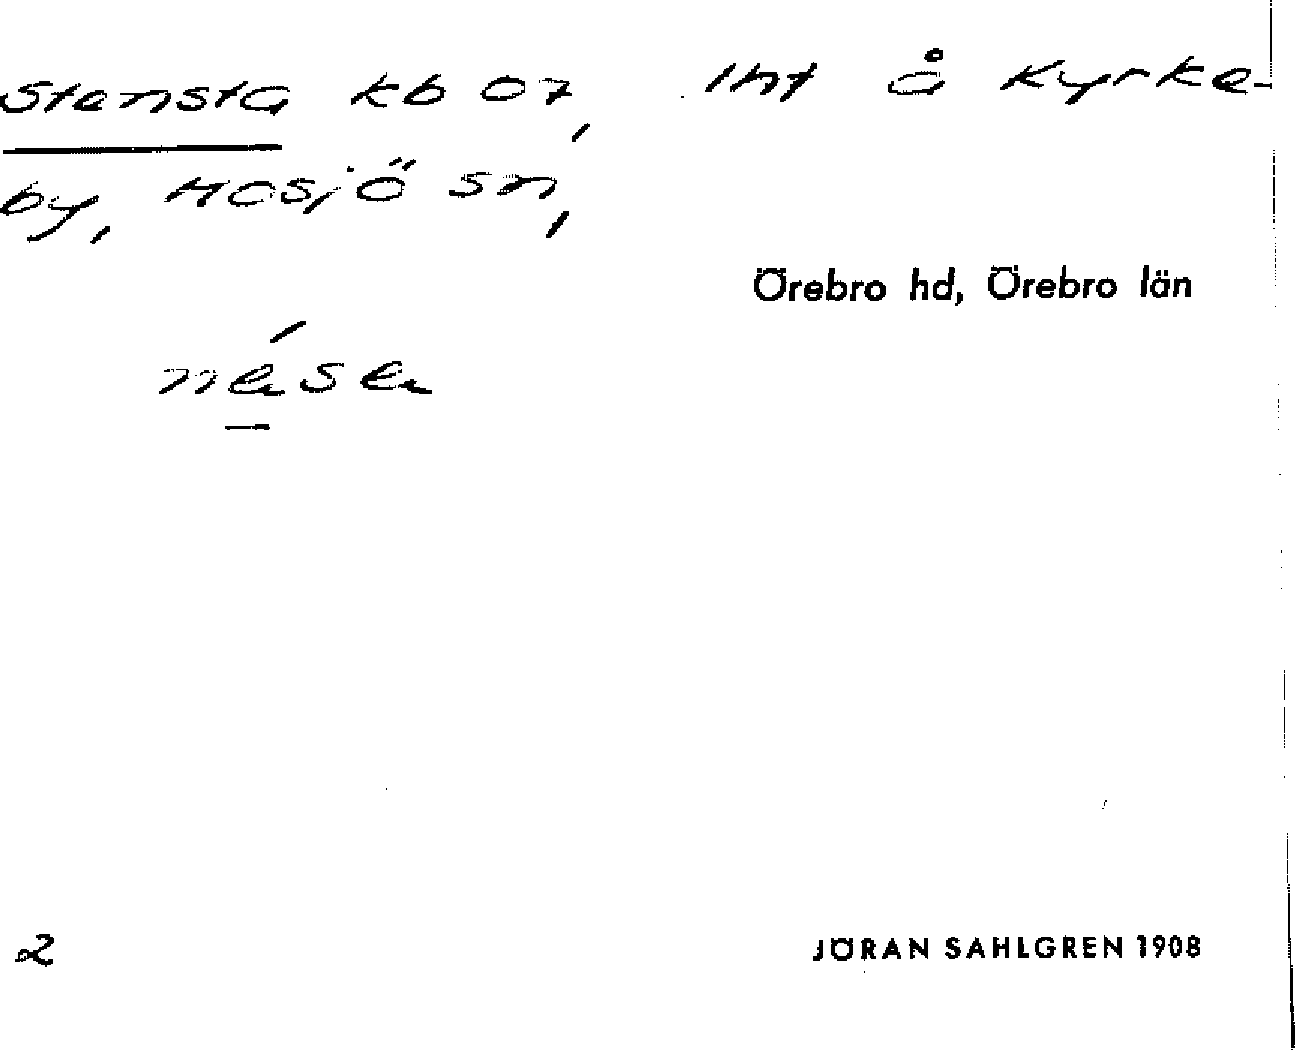 Stensta kb 07, Int å Kyrke-
by, Mosjö sn,
Örebro hd, Örebro län
nése
2
JÖRAN SAHLGREN 1908